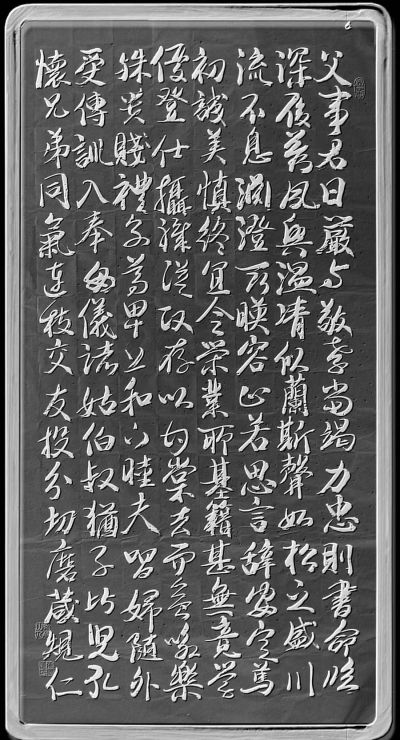 父事君曰嚴与敬孝當竭力忠則盡命臨
深履薄夙興溫凊似蘭斯馨如松之盛川
流不息淵澄取暎容止若思言辭安定篤
初誠美慎終宜令榮業所基籍甚無竟學
優登仕攝職從政存以甘棠去而益詠樂
殊貴賤禮別尊卑上和下睦夫唱婦隨外
受傅訓入奉母儀諸姑伯叔猶子比兒孔
懷兄弟同氣連枝交友投分切磨箴規仁